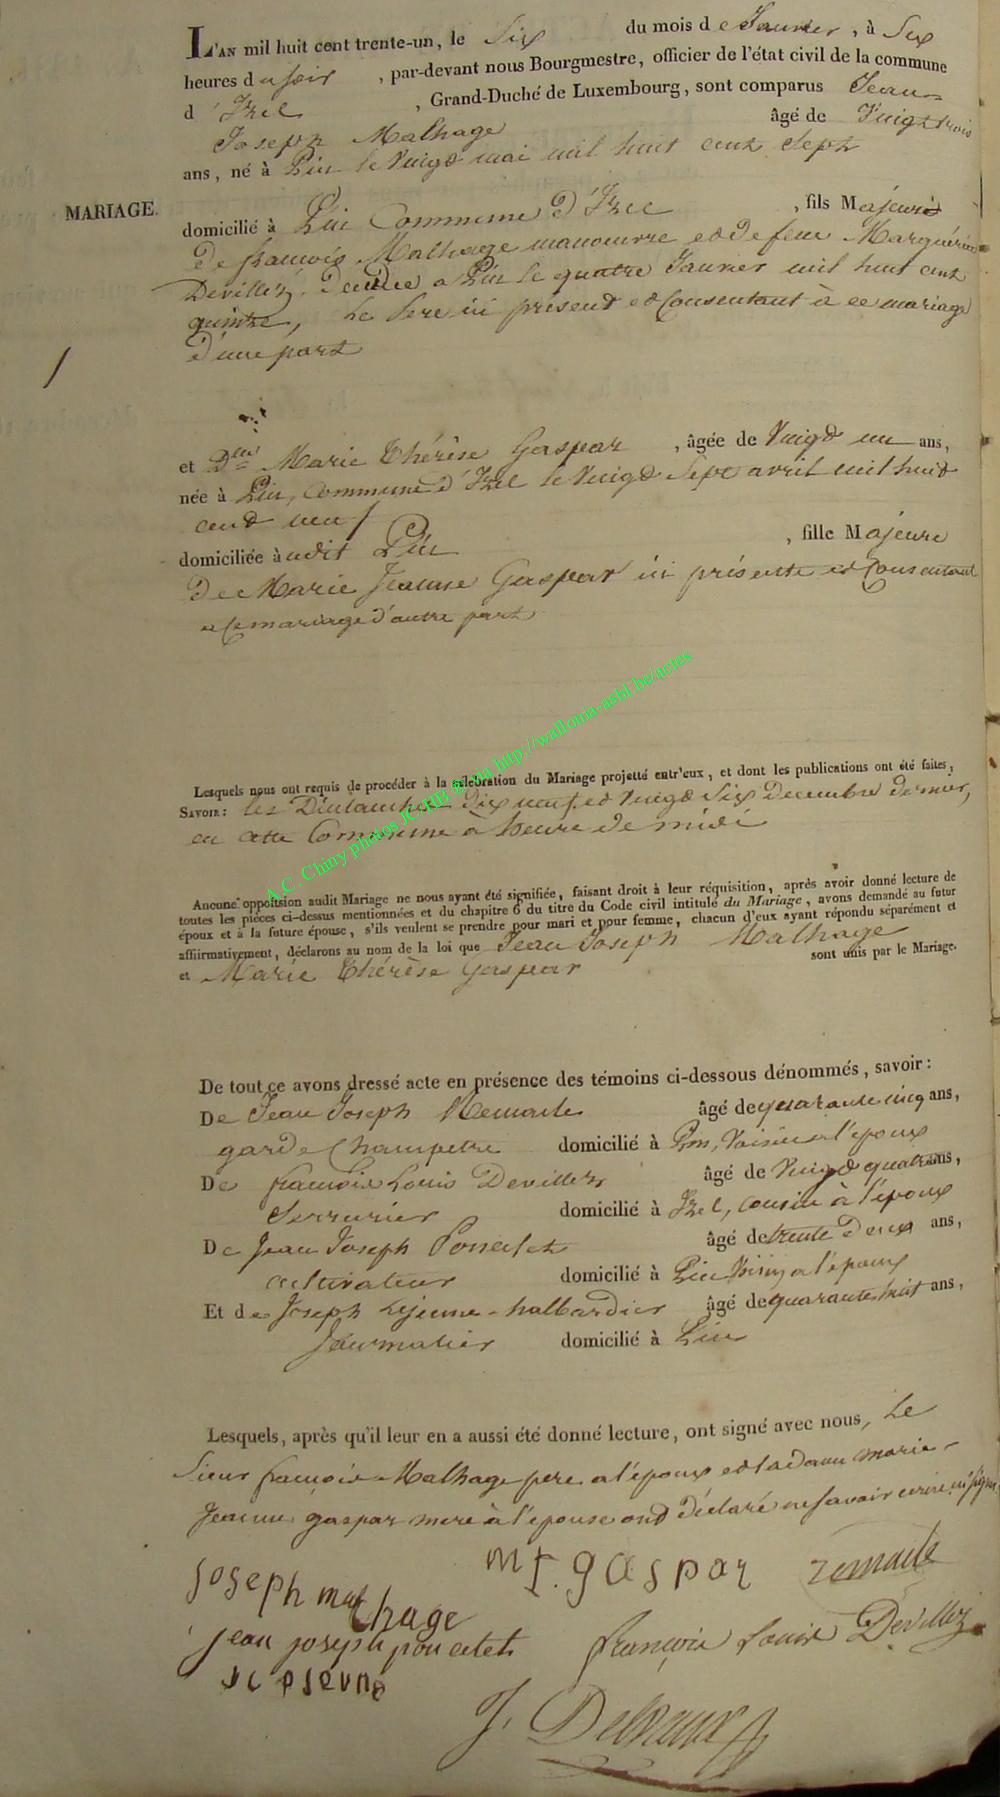 L'AN mil huit cent trente-un, le Six du mois de Janvier, à Six
heures du soir, par-devant nous Bourgmestre, officier de l'état civil de la commune
d'Izel, Grand-Duché de Luxembourg, sont comparus Jean
Joseph Malhage âgé de Vingt trois
ans, né à Pin le Vingt mai mil huit cent Sept
MARIAGE.
domicilié à Pin Commune d'Izel, fils Majeur
de françois Malhage manoeuvre et de feue Marguérite
Devillez, décédée a Pin le quatre Janvier mil huit cent
quinze, Le Pere ici présent et Consentant à ce mariage
d'une part
et Dlle Marie Thérèse Gaspar, âgée de Vingt un ans,
née à Pin, Commune d'Izel le Vingt Sept avril mil huit
cent neuf
domiciliée audit Pin, fille Majeure
de Marie Jeanne Gaspar ici présente et Consentant
a ce mariage d'autre part
A.C. Chiny photos JC+RH © via http://wallonia-asbl.be/actes
Lesquels nous ont requis de procéder à la célébration du Mariage projetté entr'eux, et dont les publications ont été faites,
SAVOIR: les Dimanches dix neuf et Vingt Six Decembre dernier,
en cette Commune à heure de midi
Aucune oppoitsion audit Mariage ne nous ayant été signifiée, faisant droit à leur réquisition, après avoir donné lecture de
toutes les pièces ci-dessus mentionnées et du chapitre 6 du titre du Code civil intitulé du Mariage, avons demandé au futur
époux et à la future épouse, s'ils veulent se prendre pour mari et pour femme, chacun d'eux ayant répondu séparément et
affiirmativement, déclarons au nom de la loi que Jean Joseph Malhage
et Marie Thérèse Gaspar sont unis par le Mariage.
De tout ce avons dressé acte en présence des témoins ci-dessous dénommés, savoir:
De Jean Joseph Remacle âgé de quarante cinq ans,
garde Champetre domicilié à Pin, Voisin a l'epoux
De françois Louis Devillez âgé de Vingt quatre ans,
Serrurier domicilié à Izel, cousin à l'époux
De Jean Joseph Poncelet âgé de trente deux ans,
cultivateur domicilié à Pin Voisin a l'epoux
Et de Joseph Lejeune-halbardier âgé de quarante huit ans,
Journalier domicilié à Pin
Lesquels, après qu'il leur en a aussi été donné lecture, ont signé avec nous, Le
Sieur françois Malhage pere a l'époux et la dame marie
Jeanne gaspar mere à l'epouse ont déclaré ne savoir ecrire ni signer.
Joseph malhage mt. gaspar remacle
jean joseph poncelet françois Louis Devillez
J. Delvaux